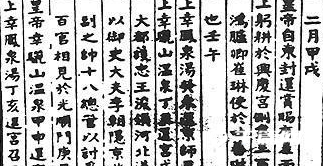 二月甲戌
皇帝自東封還賞賜有差
上躬耕於興慶宮側盡三
鴻臚卿崔琳使於吐蕃
也壬午
上幸鳳泉湯癸未還京師
上幸山溫泉丁還宮
大都護忠王浚領河北道
以御史大夫李朝隱京
副之帥十八總管以討
百官相見於光順門庚
皇帝幸山溫泉甲申還
上幸鳳泉湯丁亥還宮召